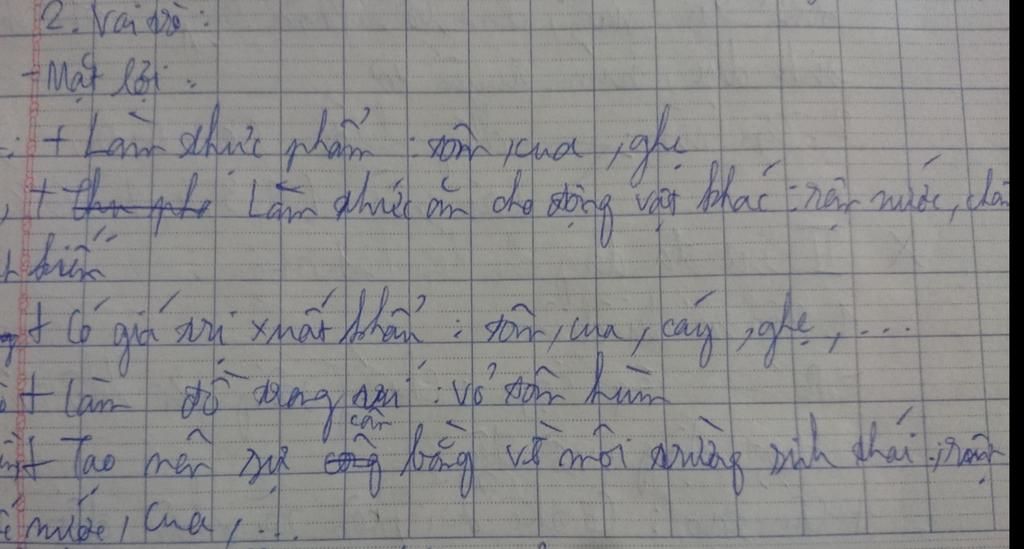 2. Vai trò:
- Mặt lợi:
+ Làm thức phẩm: tôm, cua, ghẹ
+ Làm thức ăn cho động vật khác: rận nước, chân
biến
+ Có giá trị xuất khẩu: tôm, cua, cáy, ghẹ, ...
+ Làm đồ trang trí: vỏ tôm hùm
+ Tạo nên sự cân bằng về môi trường sinh thái: rận
nước, cua, ...